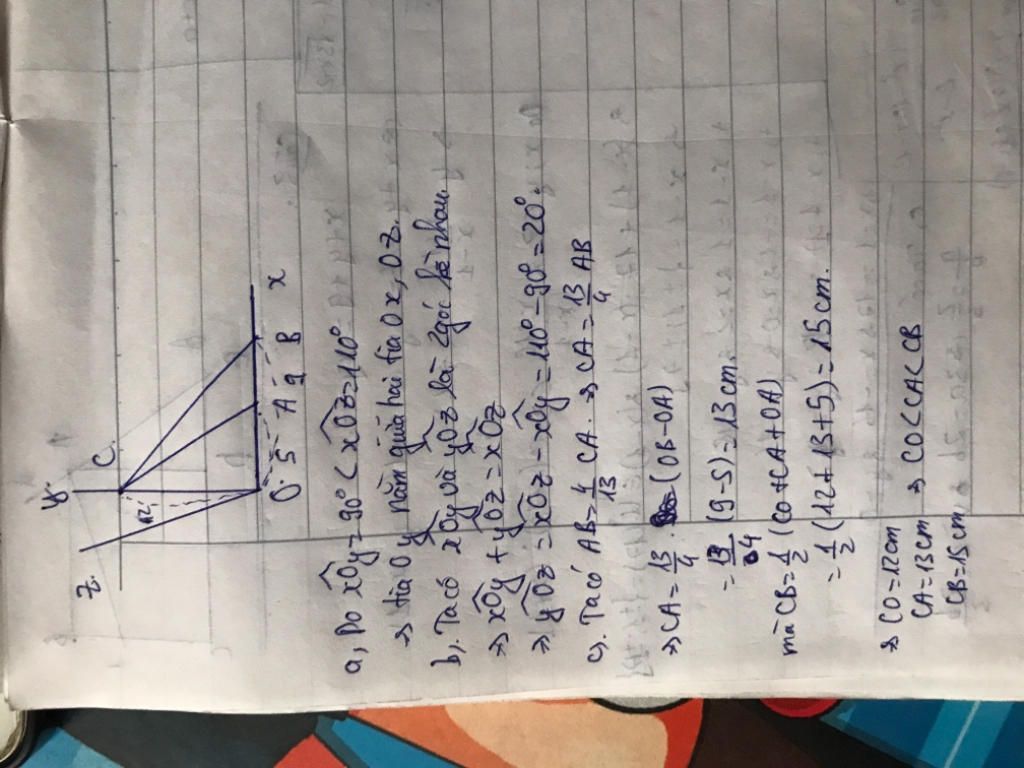 z.
y.
C
12
O 5 A 9 B x
a, Do xÔy = 90° < xÔz = 110°
→ tia Oy nằm giữa hai tia Ox, Oz.
b). Ta có xÔy và yÔz là 2 góc kề nhau
⇒ xÔy + yÔz = xÔz
⇒ yÔz = xÔz - xÔy = 110° - 90° = 20°.
c). Ta có AB = 4/13 CA. ⇒ CA = 13/4 AB
⇒ CA = 13/4 . (OB - OA)
= 13/4 (9 - 5) = 13 cm.
mà CB = 1/2 (CO + CA + OA)
= 1/2 (12 + 13 + 5) = 15 cm.
⇒ CO = 12 cm
CA = 13 cm ⇒ CO < CA < CB
CB = 15 cm